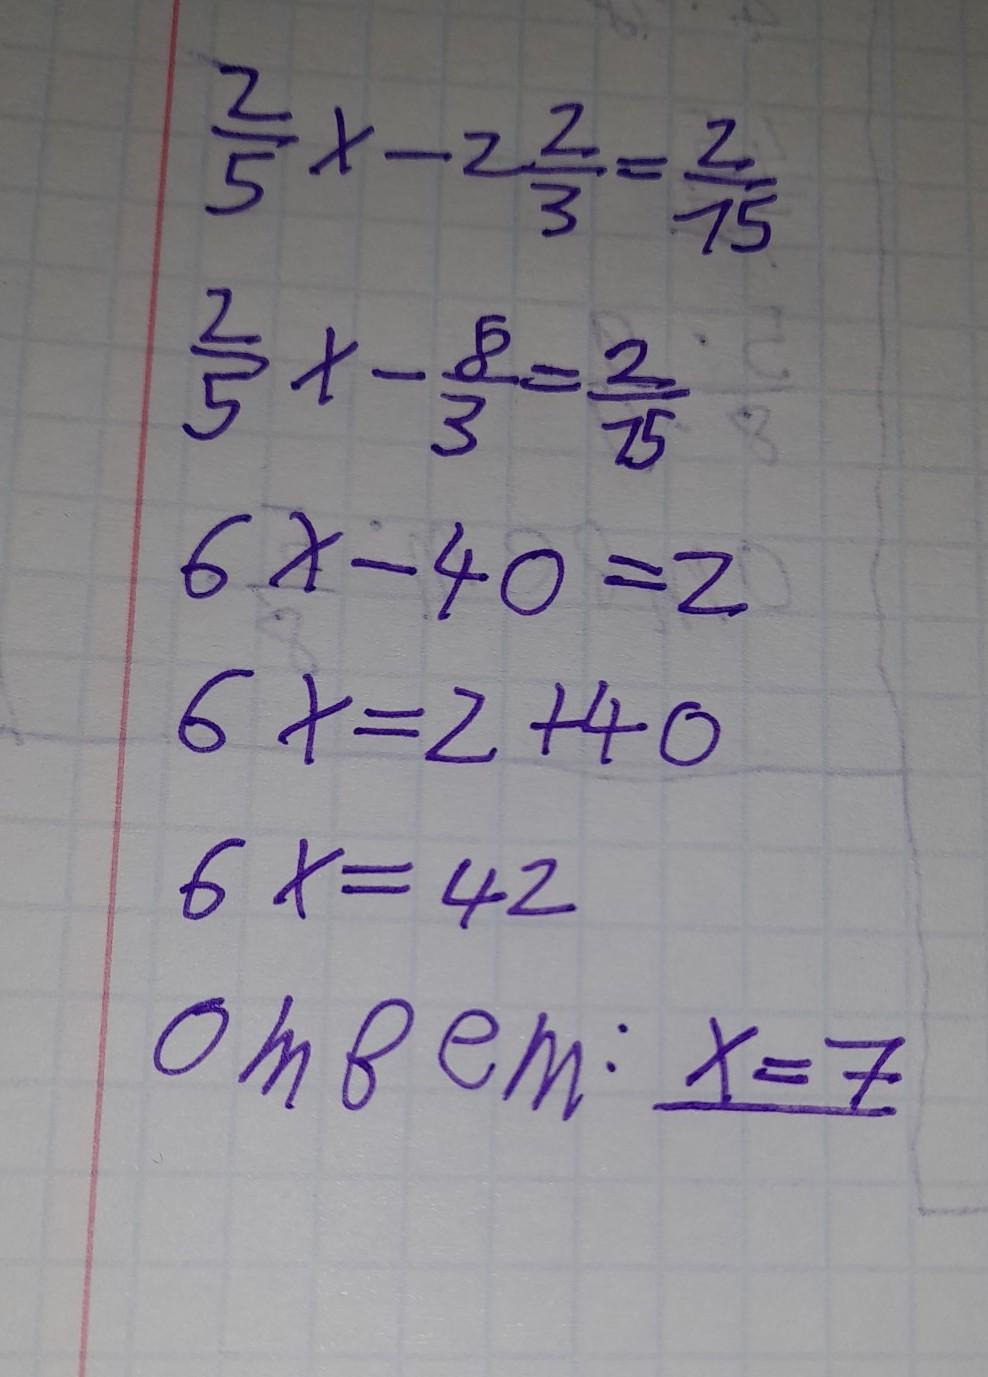 2/5 x - 2 2/3 = 2/15
2/5 x - 8/3 = 2/15
6x - 40 = 2
6x = 2 + 40
6x = 42
Ответ: x = 7